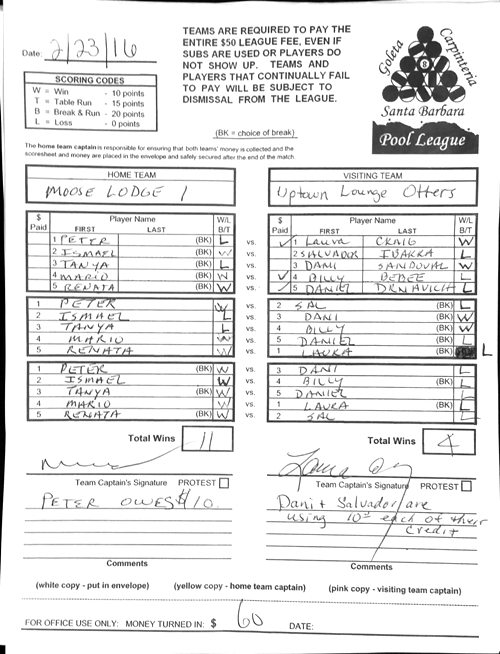 Date: 2/23/16
TEAMS ARE REQUIRED TO PAY THE
ENTIRE $50 LEAGUE FEE, EVEN IF
SUBS ARE USED OR PLAYERS DO
NOT SHOW UP. TEAMS AND
PLAYERS THAT CONTINUALLY FAIL
TO PAY WILL BE SUBJECT TO
DISMISSAL FROM THE LEAGUE.
(BK = choice of break)
Goleta
Carpinteria
8
Santa Barbara
Pool League
SCORING CODES
W = Win - 10 points
T = Table Run - 15 points
B = Break & Run - 20 points
L = Loss - 0 points
The home team captain is responsible for ensuring that both teams' money is collected and the
scoresheet and money are placed in the envelope and safely secured after the end of the match.
HOME TEAM
MOOSE LODGE 1
VISITING TEAM
Uptown Lounge Otters
$ Paid Player Name FIRST LAST W/L B/T
$ Paid Player Name FIRST LAST W/L B/T
1 PETER (BK) L vs. ✓ 1 Laura CRAIG W
2 ISMAEL (BK) W vs. 2 SALVADOR IBARRA L
3 TANYA (BK) L vs. 3 DANI SANDOVAL W
4 MARIO (BK) W vs. ✓ 4 BILLY BEBEE L
5 RENATA (BK) W vs. ✓ 5 DANIEL L
1 PETER W vs. 2 SAL (BK) L
2 ISMAEL L vs. 3 DANI (BK) W
3 TANYA L vs. 4 BILLY (BK) W
4 MARIO W vs. 5 DANIEL (BK) L
5 RENATA W vs. 1 LAURA (BK) L
1 PETER (BK) W vs. 3 DANI L
2 ISMAEL W vs. 4 BILLY (BK) L
3 TANYA (BK) W vs. 5 DANIEL L
4 MARIO W vs. 1 LAURA (BK) L
5 RENATA (BK) W vs. 2 SAL L
Total Wins 11
Total Wins 4
Team Captain's Signature PROTEST
Team Captain's Signature PROTEST
PETER OWES $10.
Dani + Salvador are
using 10 each of their
credit
Comments
Comments
(white copy - put in envelope) (yellow copy - home team captain) (pink copy - visiting team captain)
FOR OFFICE USE ONLY: MONEY TURNED IN: $ 60 DATE: